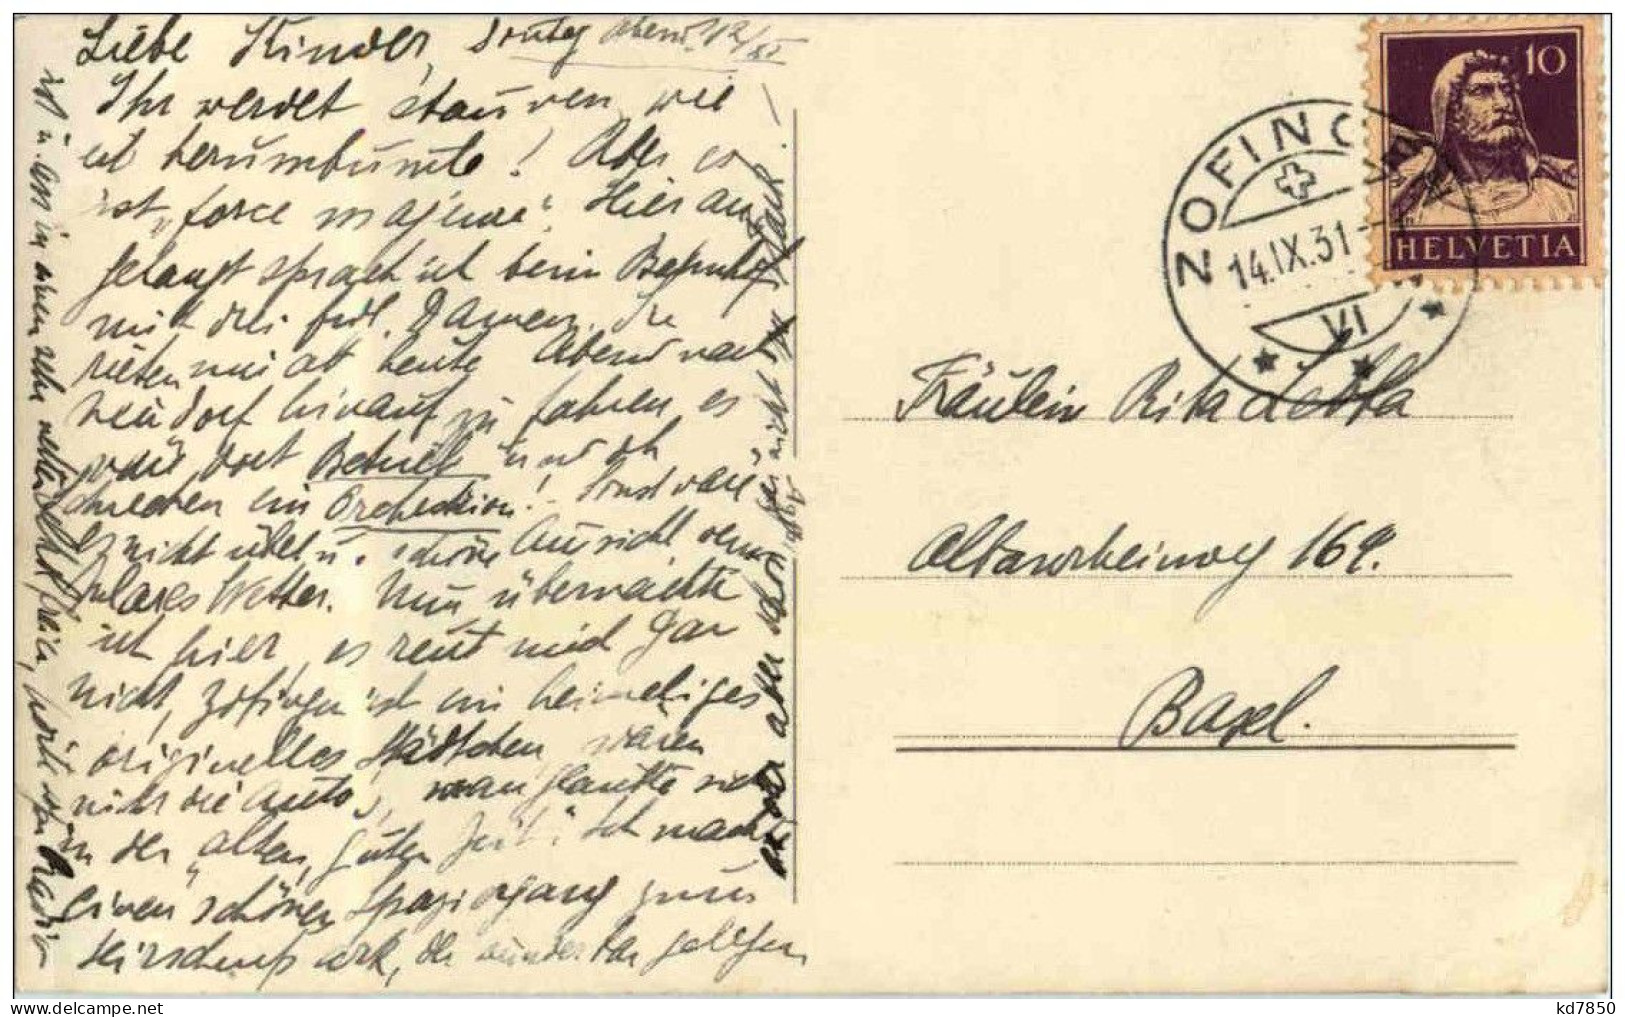 Liebe Kinder, Sontag Abend 12/IX
Ihr werdet staunen wie
ich herumbumle! Aber es
ist „force majeure". Hier an-
gelangt sprach ich beim Bahnhof
mit drei frdl. Damen. Sie
rieten mir ab heute Abend nach
hinauf zu fahren, es
wäre dort Betrieb und ich
ein Orchestrion! Sonst wäre
es nicht übel u. schöne Aussicht, wenn
klares Wetter. Nun übernachte
ich hier, es reut mich gar
nicht, Zofingen ist ein heimeliges
originelles Städtchen, wären
nicht die Auto's, man glaubte sich
in der „alten, guten Zeit". Ich machte
einen schönen Spaziergang zum
Hirschenpark, der wunderbar gelegen
ist u.
Radio
10
HELVETIA
ZOFINGEN
14.IX.31
VI
Fräulein Rita
169.
Basel.
kd7850